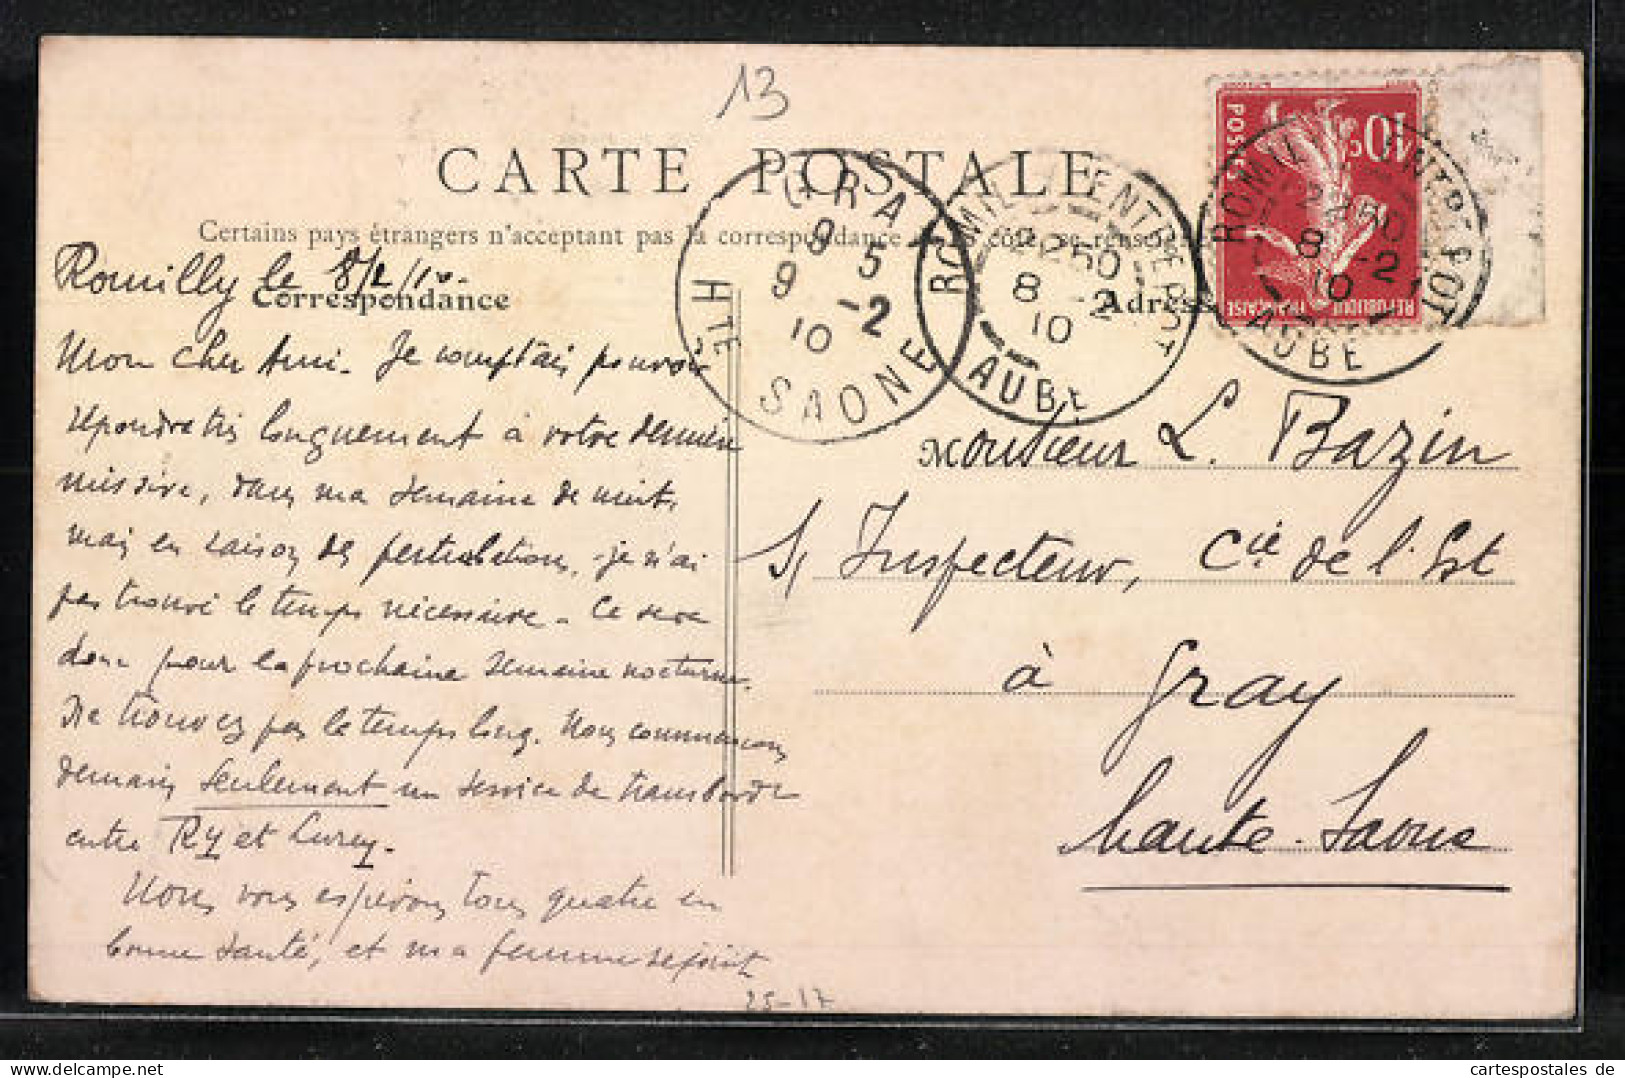 13
CARTE POSTALE
Certains pays étrangers n'acceptant pas la correspondance de ce côté, se renseigner
Romilly le 8/2/10.
Correspondance
Adresse
Mon cher Ami. Je comptais pouvoir
répondre très longuement à votre dernière
missive, dans ma semaine de nuit,
mais en raison des perturbations, je n'ai
pas trouvé le temps nécessaire. Ce sera
donc pour la prochaine semaine nocturne.
Ne trouvez pas le temps long. Nous commençons
demain seulement un service de transborde
entre RY et Lurey.
Nous vous espérons tous quatre en
bonne santé, et ma femme se joint
25-17
Monsieur L. Bazin
S/ Inspecteur, Cie de l'Est
à Gray
Haute-Saône
GRAY
9 5
9 -2
10
HTE SAONE
ROMILLY ENTREPOT
22 50
8 -2
10
AUBE
10c
POSTES
REPUBLIQUE FRANÇAISE
ROMILLY ENTREPOT
22 50
8 -2
10
AUBE
cartespostales de